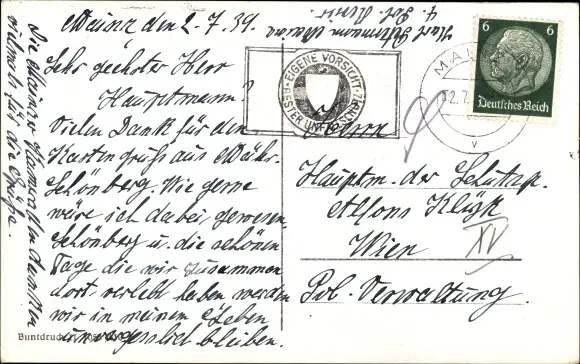 Mainz den 2.7.39.
Sehr geehrter Herr
Hauptmann!
Vielen Dank für den
Kartengruß aus Mähr.
Schönberg. Wie gerne
wäre ich dabei gewesen.
Schönberg u. die schönen
Tage die wir zusammen
dort verlebt haben werden
wir in meinem Leben
unvergesslich bleiben.
Die Mainzer Kameraden danken
vielmals für die Grüße.
Karl Mainz
4. Pol. Revier.
EIGENE VORSICHT:
BESTER UNFALLSCHUTZ
MAINZ
2.7.
6 6
Deutsches Reich
Herrn
Hauptm. der Schutzp.
Alfons
Wien XV
Pol.-Verwaltung.
Buntdruck